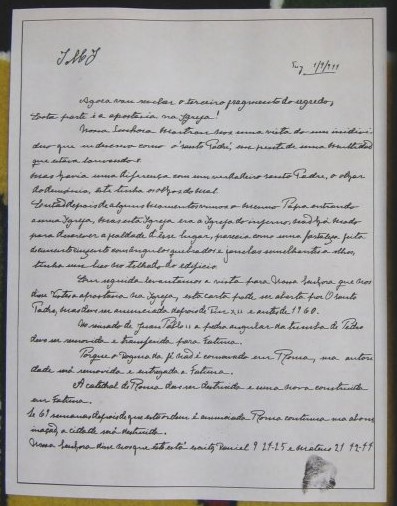 J M J
Tuy 1/9/944
Agora vou revelar o terceiro fragmento do segredo;
Esta parte é a apostasia na Igreja!
Nossa Senhora mostrou-nos uma vista do um individuo
que eu descrevo como o "santo Padre", em frente de uma multidão
que estava louvando-o.
Mas havia uma diferença com um verdadeiro santo Padre, o olhar
do demônio, este tinha os olhos do mal.
Então depois de alguns momentos vimos o mesmo Papa entrando
a uma Igreja, mas esta Igreja era a Igreja do inferno, não há modo
para descrever a fealdade d'esse lugar, parecia como uma fortaleza feita
de cimento cinzento com ângulos quebrados e janelas semelhantes a olhos,
tinha um bico no telhado do edificio.
Em seguida levantamos a vista para Nossa Senhora que nos
disse Vistes a apostasia na Igreja, esta carta pode ser aberta por O santo
Padre, mas deve ser anunciada depois de Pio XII e antes de 1960.
No reinado de Juan Pablo II a pedra angular da tumba de Pedro
deve ser removida e transferida para Fatima.
Porque o Dogma da fé não é conservado em Roma, sua autoridade
será removida e entregada a Fatima.
A catedral de Roma deve ser destruida e uma nova construida
em Fatima.
Se 69 semanas depois de que esta ordem é anunciada Roma continua sua abominação,
a cidade será destruida.
Nossa Senhora disse-nos que isto está escrito, Daniel 9 24-25 e Mateus 21 42-44